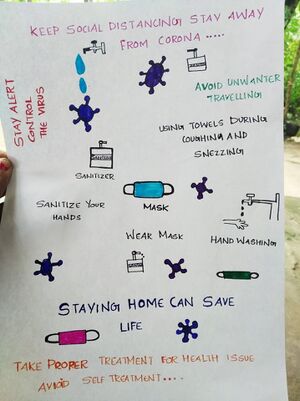 KEEP SOCIAL DISTANCING STAY AWAY
FROM CORONA.....
STAY ALERT
CONTROL
THE VIRUS
AVOID UNWANTER
TRAVELLING
USING TOWELS DURING
COUGHING AND
SNEZZING
SANITIZER
SANITIZE YOUR
HANDS
MASK
WEAR MASK
HAND WASHING
STAYING HOME CAN SAVE
LIFE
TAKE PROPER TREATMENT FOR HEALTH ISSUE
AVOID SELF TREATMENT....